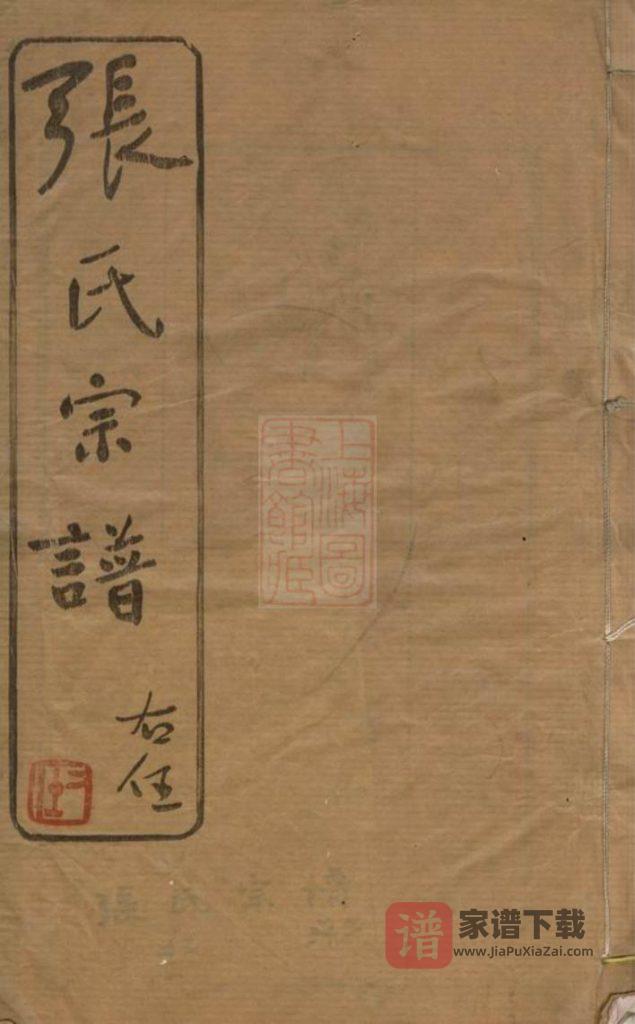 張氏宗譜
右任
上海圖
書館藏
張氏宗譜
谱
家谱下载
www.JiaPuXiaZai.com